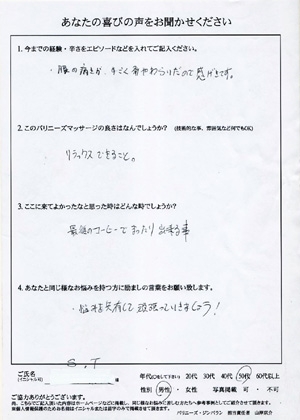 あなたの喜びの声をお聞かせください
1. 今までの経験・辛さをエピソードなどを入れてご記入ください。
・腰の痛さが、すごくやわらいだので感げきです。
2. このバリニーズマッサージの良さはなんでしょうか? (技術的な事、雰囲気など何でもOK)
リラックスできること。
3. ここに来てよかったなと思った時はどんな時でしょうか?
最後のコーヒーでまったり出来る事
4. あなたと同じ様なお悩みを持つ方に励ましの言葉をお願い致します。
・悩みを共有して頑張っていきましょう!
S.T
ご氏名
(イニシャル可)
年代(○をして下さい) 20代 30代 40代 50代 60代以上
性別 男性 ・ 女性 写真掲載 可 ・ 不可
ご協力ありがとうございます。
バリニーズ・ジンバラン 担当責任者 山岸